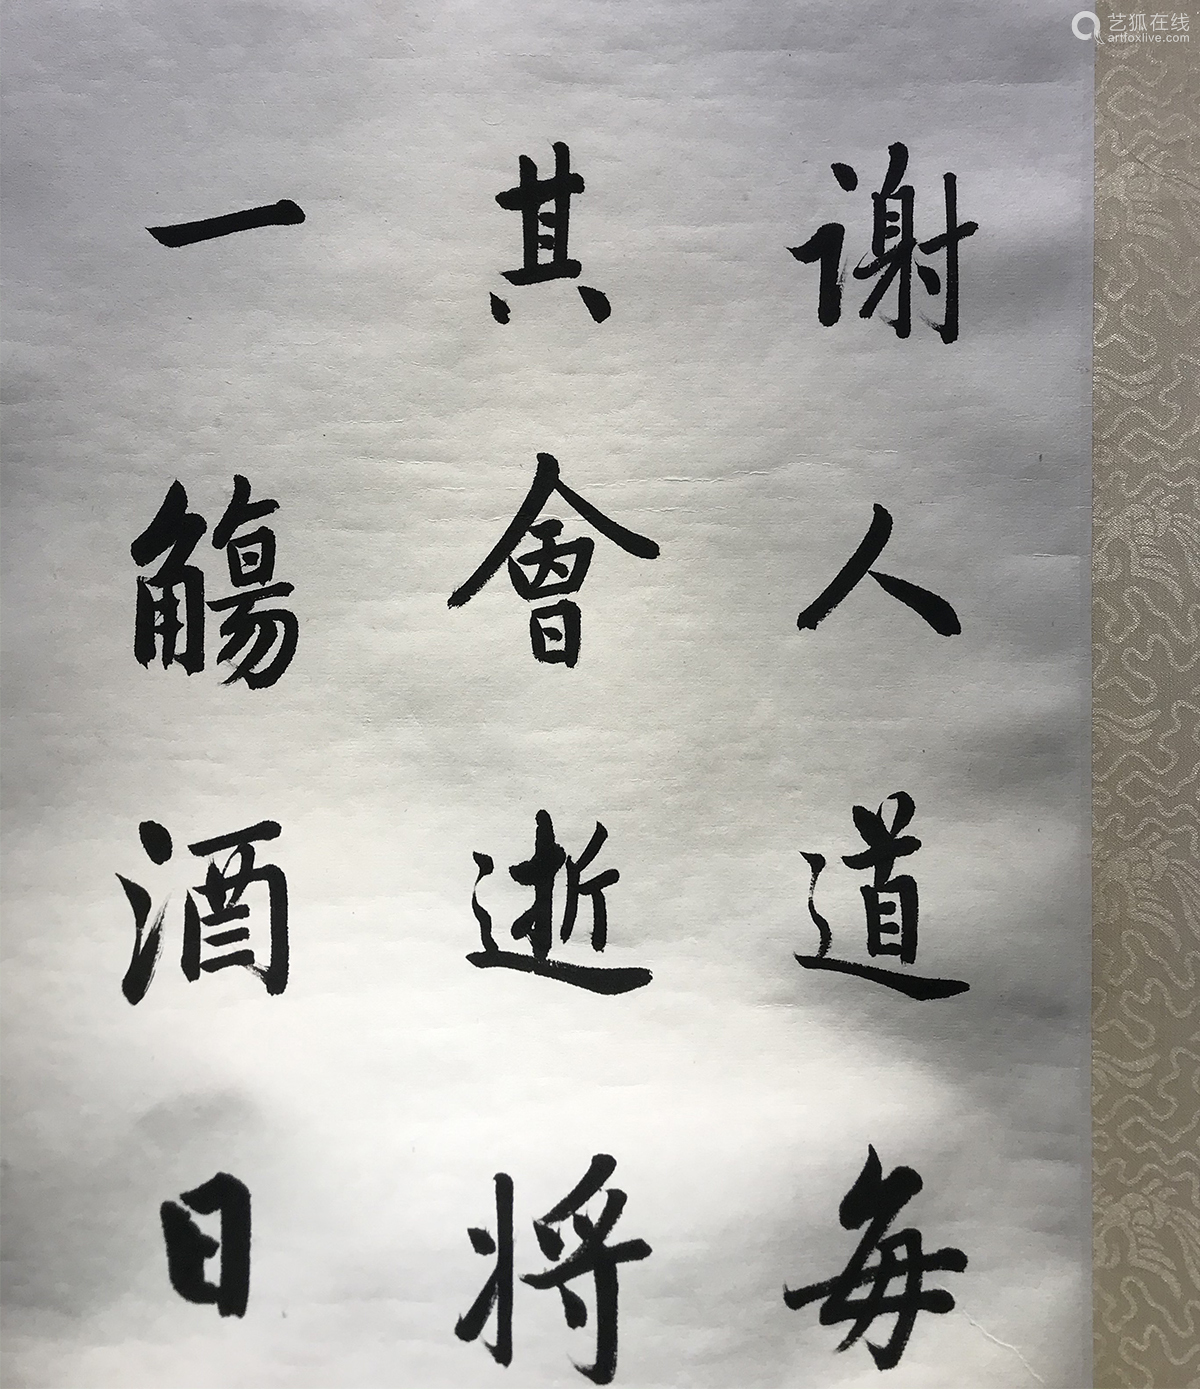 谢人道每
其會逝将
一觴酒日
艺狐在线
artfoxlive.com